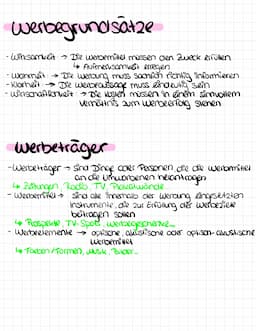 Werbegrundsätze
- Wirksamkeit → Die Werbemittel müssen den Zweck erfüllen
↳ Aufmerksamkeit erregen
- Wahrheit → Die Werbung muss sachlich richtig informieren
- Klarheit → Die Werbeaussage muss eindeutig sein
- Wirtschaftlichkeit → Die Kosten müssen in einem sinnvollem
Verhältnis zum Werbeerfolg stehen
Werbeträger
- Werbeträger → sind Dinge oder Personen, die die Werbemittel
an die Umworbenen herantragen
↳ Zeitungen, Radio, TV, Plakatwände...
- Werbemittel → sind alle innerhalb der Werbung eingesetzten
Instrumente, die zur Erfüllung der Werbeziele
beitragen sollen
↳ Prospekte, TV-Spots, Werbegeschenke...
- Werbeelemente → optische, akustische oder optisch-akustische
Werbemittel
↳ Farben/Formen, Musik, Bilder...